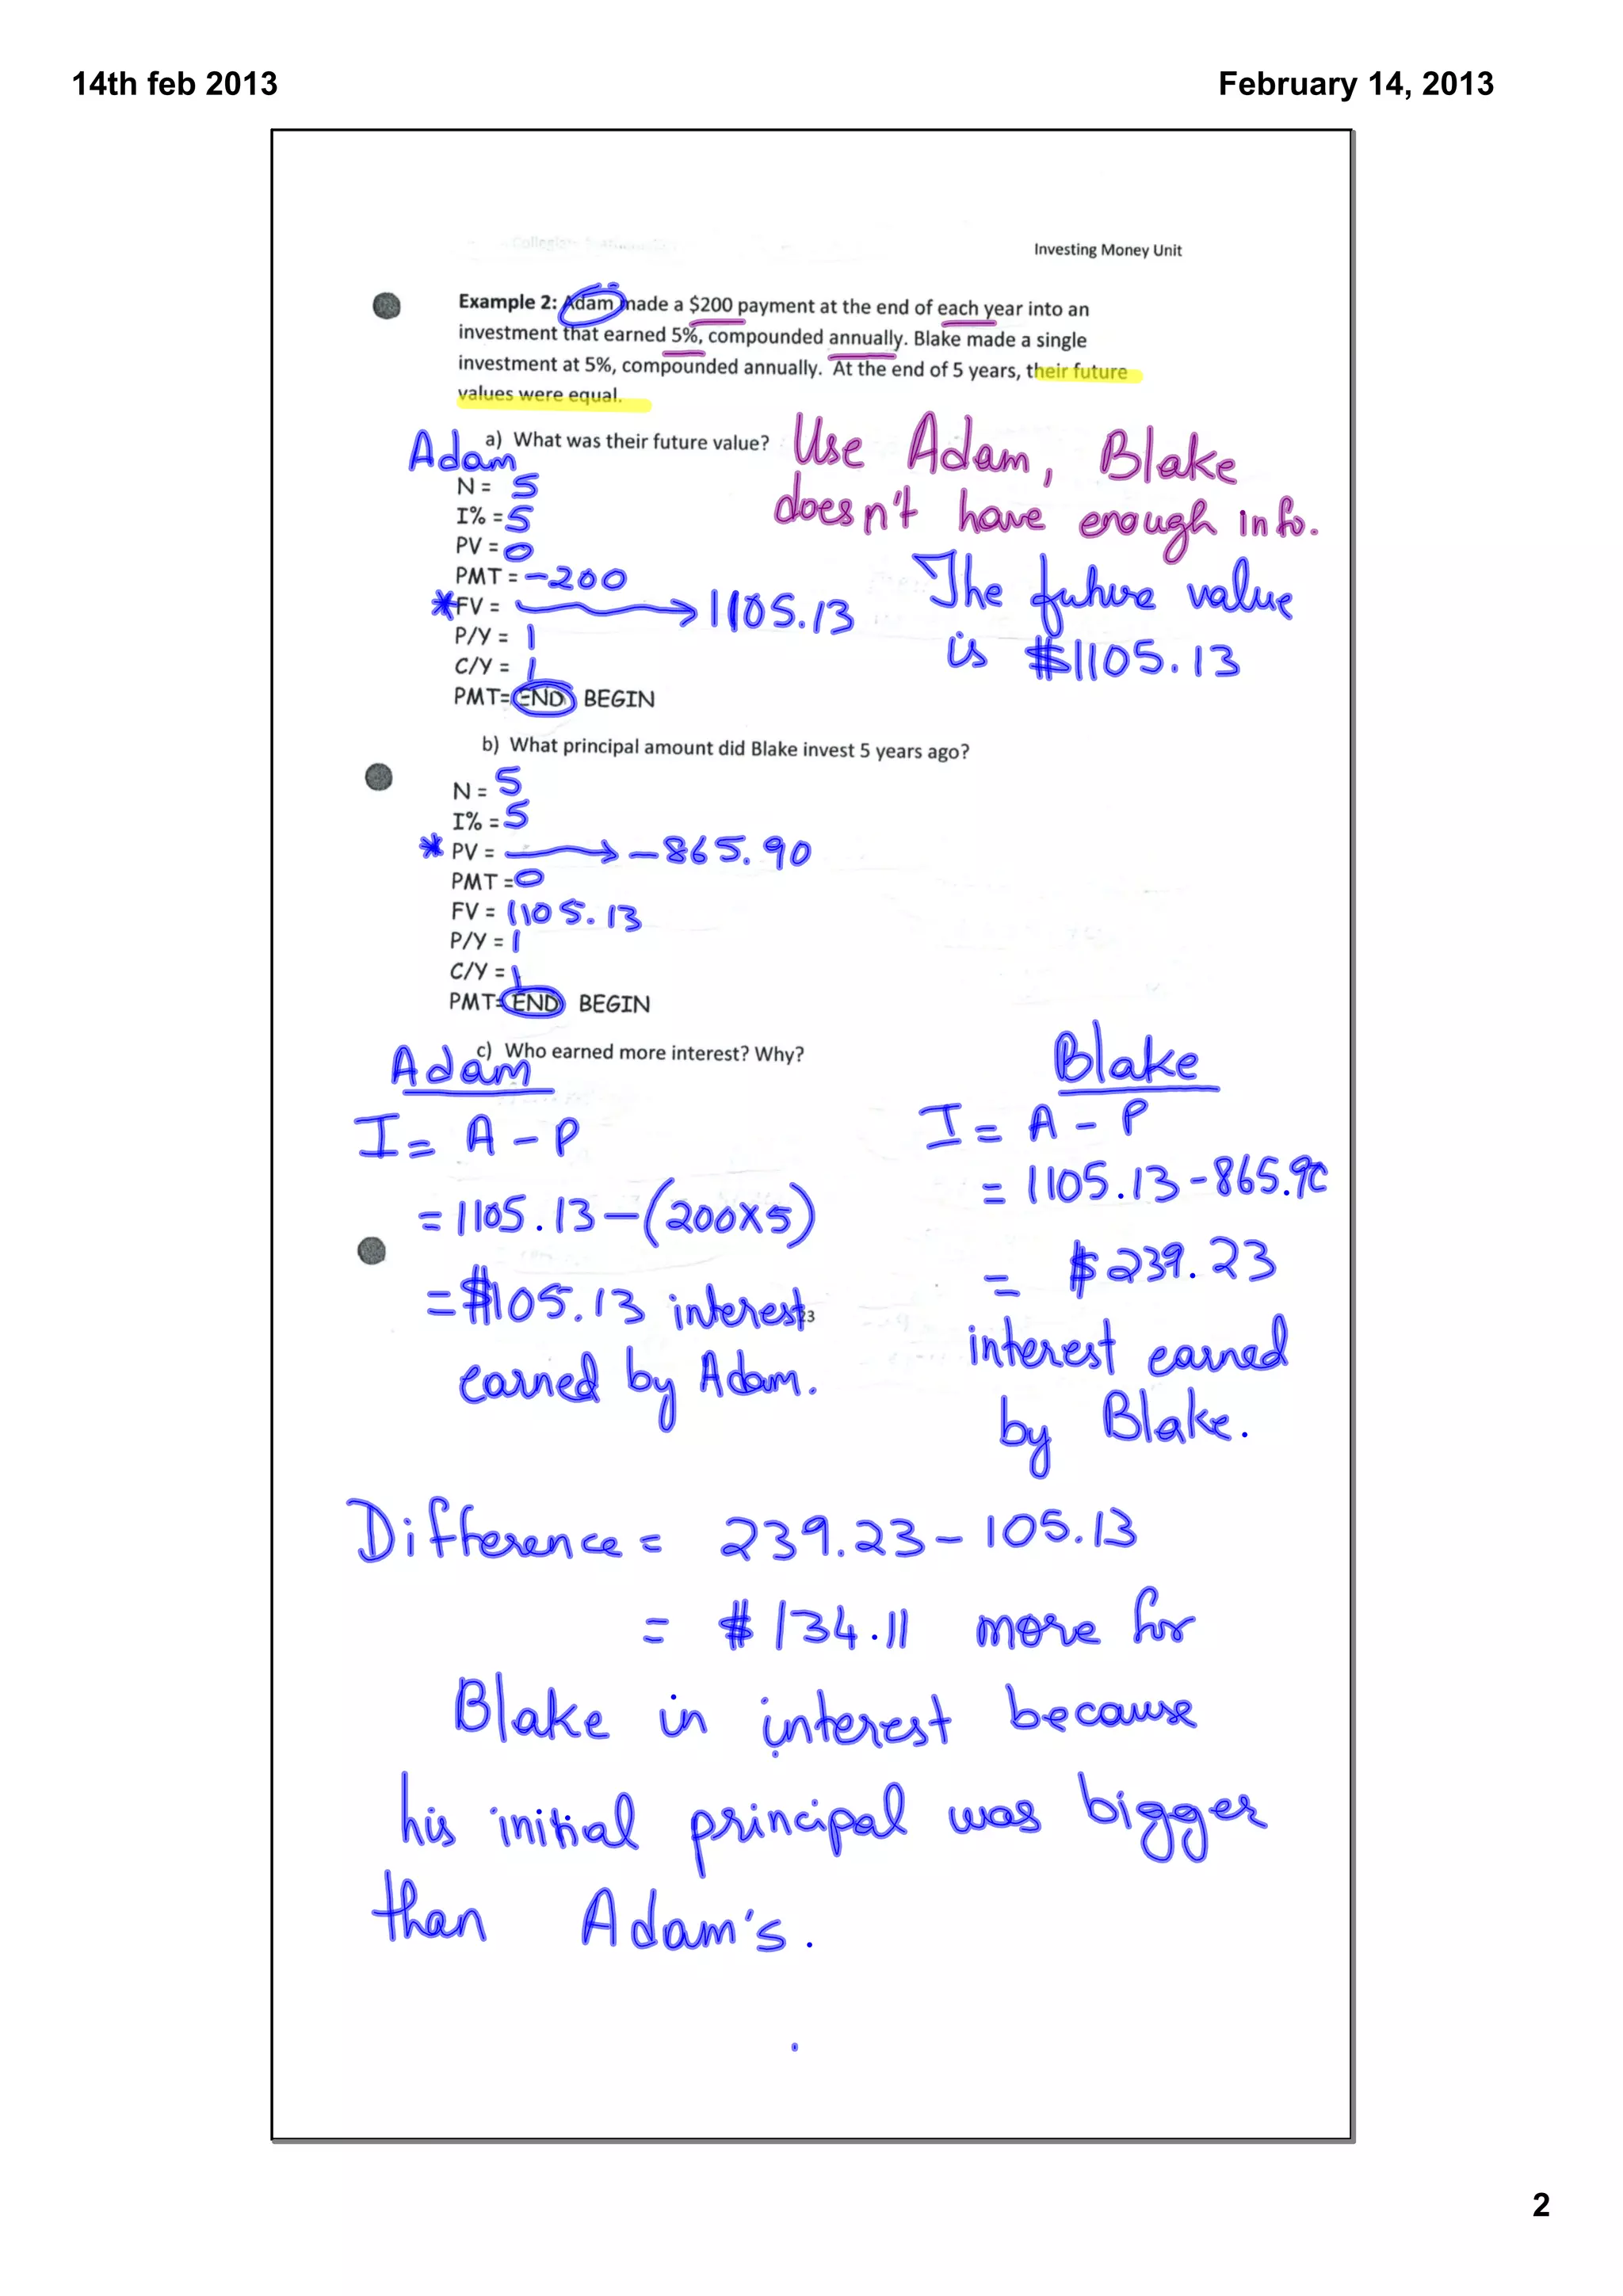 14th feb 2013 February 14, 2013
Investing Money Unit
Example 2: Adam made a $200 payment at the end of each year into an
investment that earned 5%, compounded annually. Blake made a single
investment at 5%, compounded annually. At the end of 5 years, their future
values were equal.
a) What was their future value? Use Adam, Blake
Adam
doesn't have enough info.
N = 5
I% = 5
PV = 0
PMT = -200 The future value
*FV = → 1105.13
is $1105.13
P/Y = 1
C/Y = 1
PMT= END BEGIN
b) What principal amount did Blake invest 5 years ago?
N = 5
I% = 5
* PV = → -865.90
PMT = 0
FV = 1105.13
P/Y = 1
C/Y = 1
PMT= END BEGIN
c) Who earned more interest? Why?
Adam
I = A - P
= 1105.13 - (200x5)
= $105.13 interest
23
earned by Adam.
Blake
I = A - P
= 1105.13 - 865.90
= $239.23
interest earned
by Blake.
Difference = 239.23 - 105.13
= $134.11 more for
Blake in interest because
his initial principal was bigger
than Adam's.
2